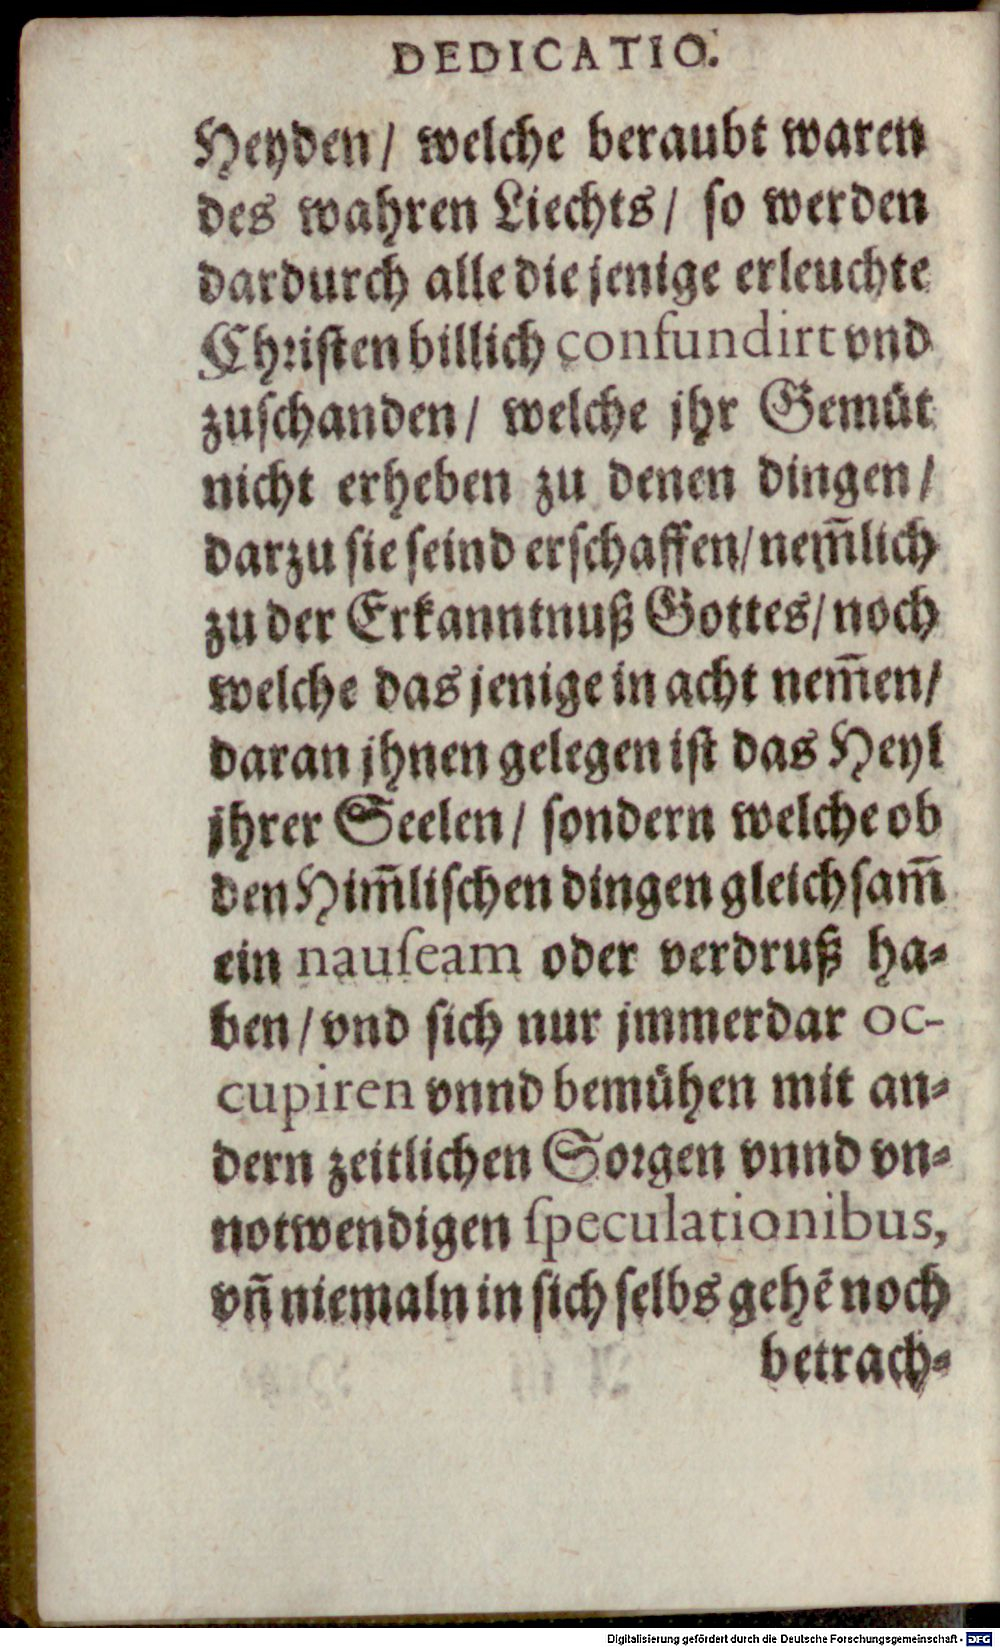 DEDICATIO.
Heyden/ welche beraubt waren
des wahren Liechts/ so werden
dardurch alle die jenige erleuchte
Christen billich confundirt vnd
zuschanden/ welche jhr Gemüt
nicht erheben zu denen dingen/
darzu sie seind erschaffen/ nem̄lich
zu der Erkanntnuß Gottes/ noch
welche das jenige in acht nem̄en/
daran jhnen gelegen ist das Heyl
jhrer Seelen/ sondern welche ob
den Him̄lischen dingen gleichsam̄
ein nauſeam oder verdruß ha-
ben/ vnd sich nur jmmerdar oc-
cupiren vnnd bemühen mit an-
dern zeitlichen Sorgen vnnd vn-
notwendigen ſpeculationibus,
vn̄ niemaln in sich selbs gehē noch
betrach-
Digitalisierung gefördert durch die Deutsche Forschungsgemeinschaft - DFG